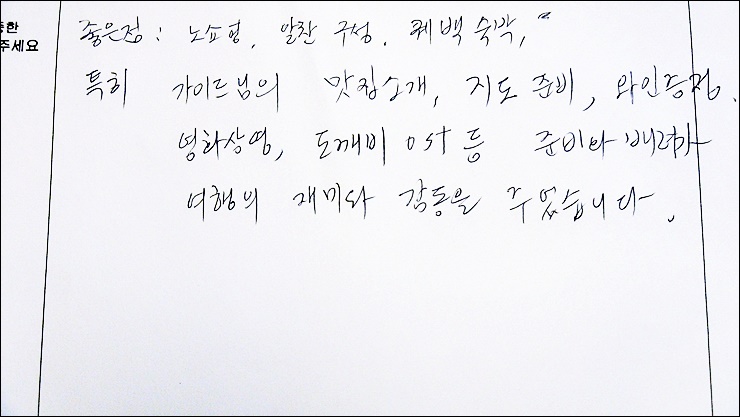 중한
주세요
좋은점 : 노쇼핑, 알찬 구성, 퀘백 숙박,
특히 가이드님의 맛집소개, 지도 준비, 와인증정,
영화상영, 도깨비 OST 등 준비와 배려가
여행의 재미와 감동을 주었습니다.